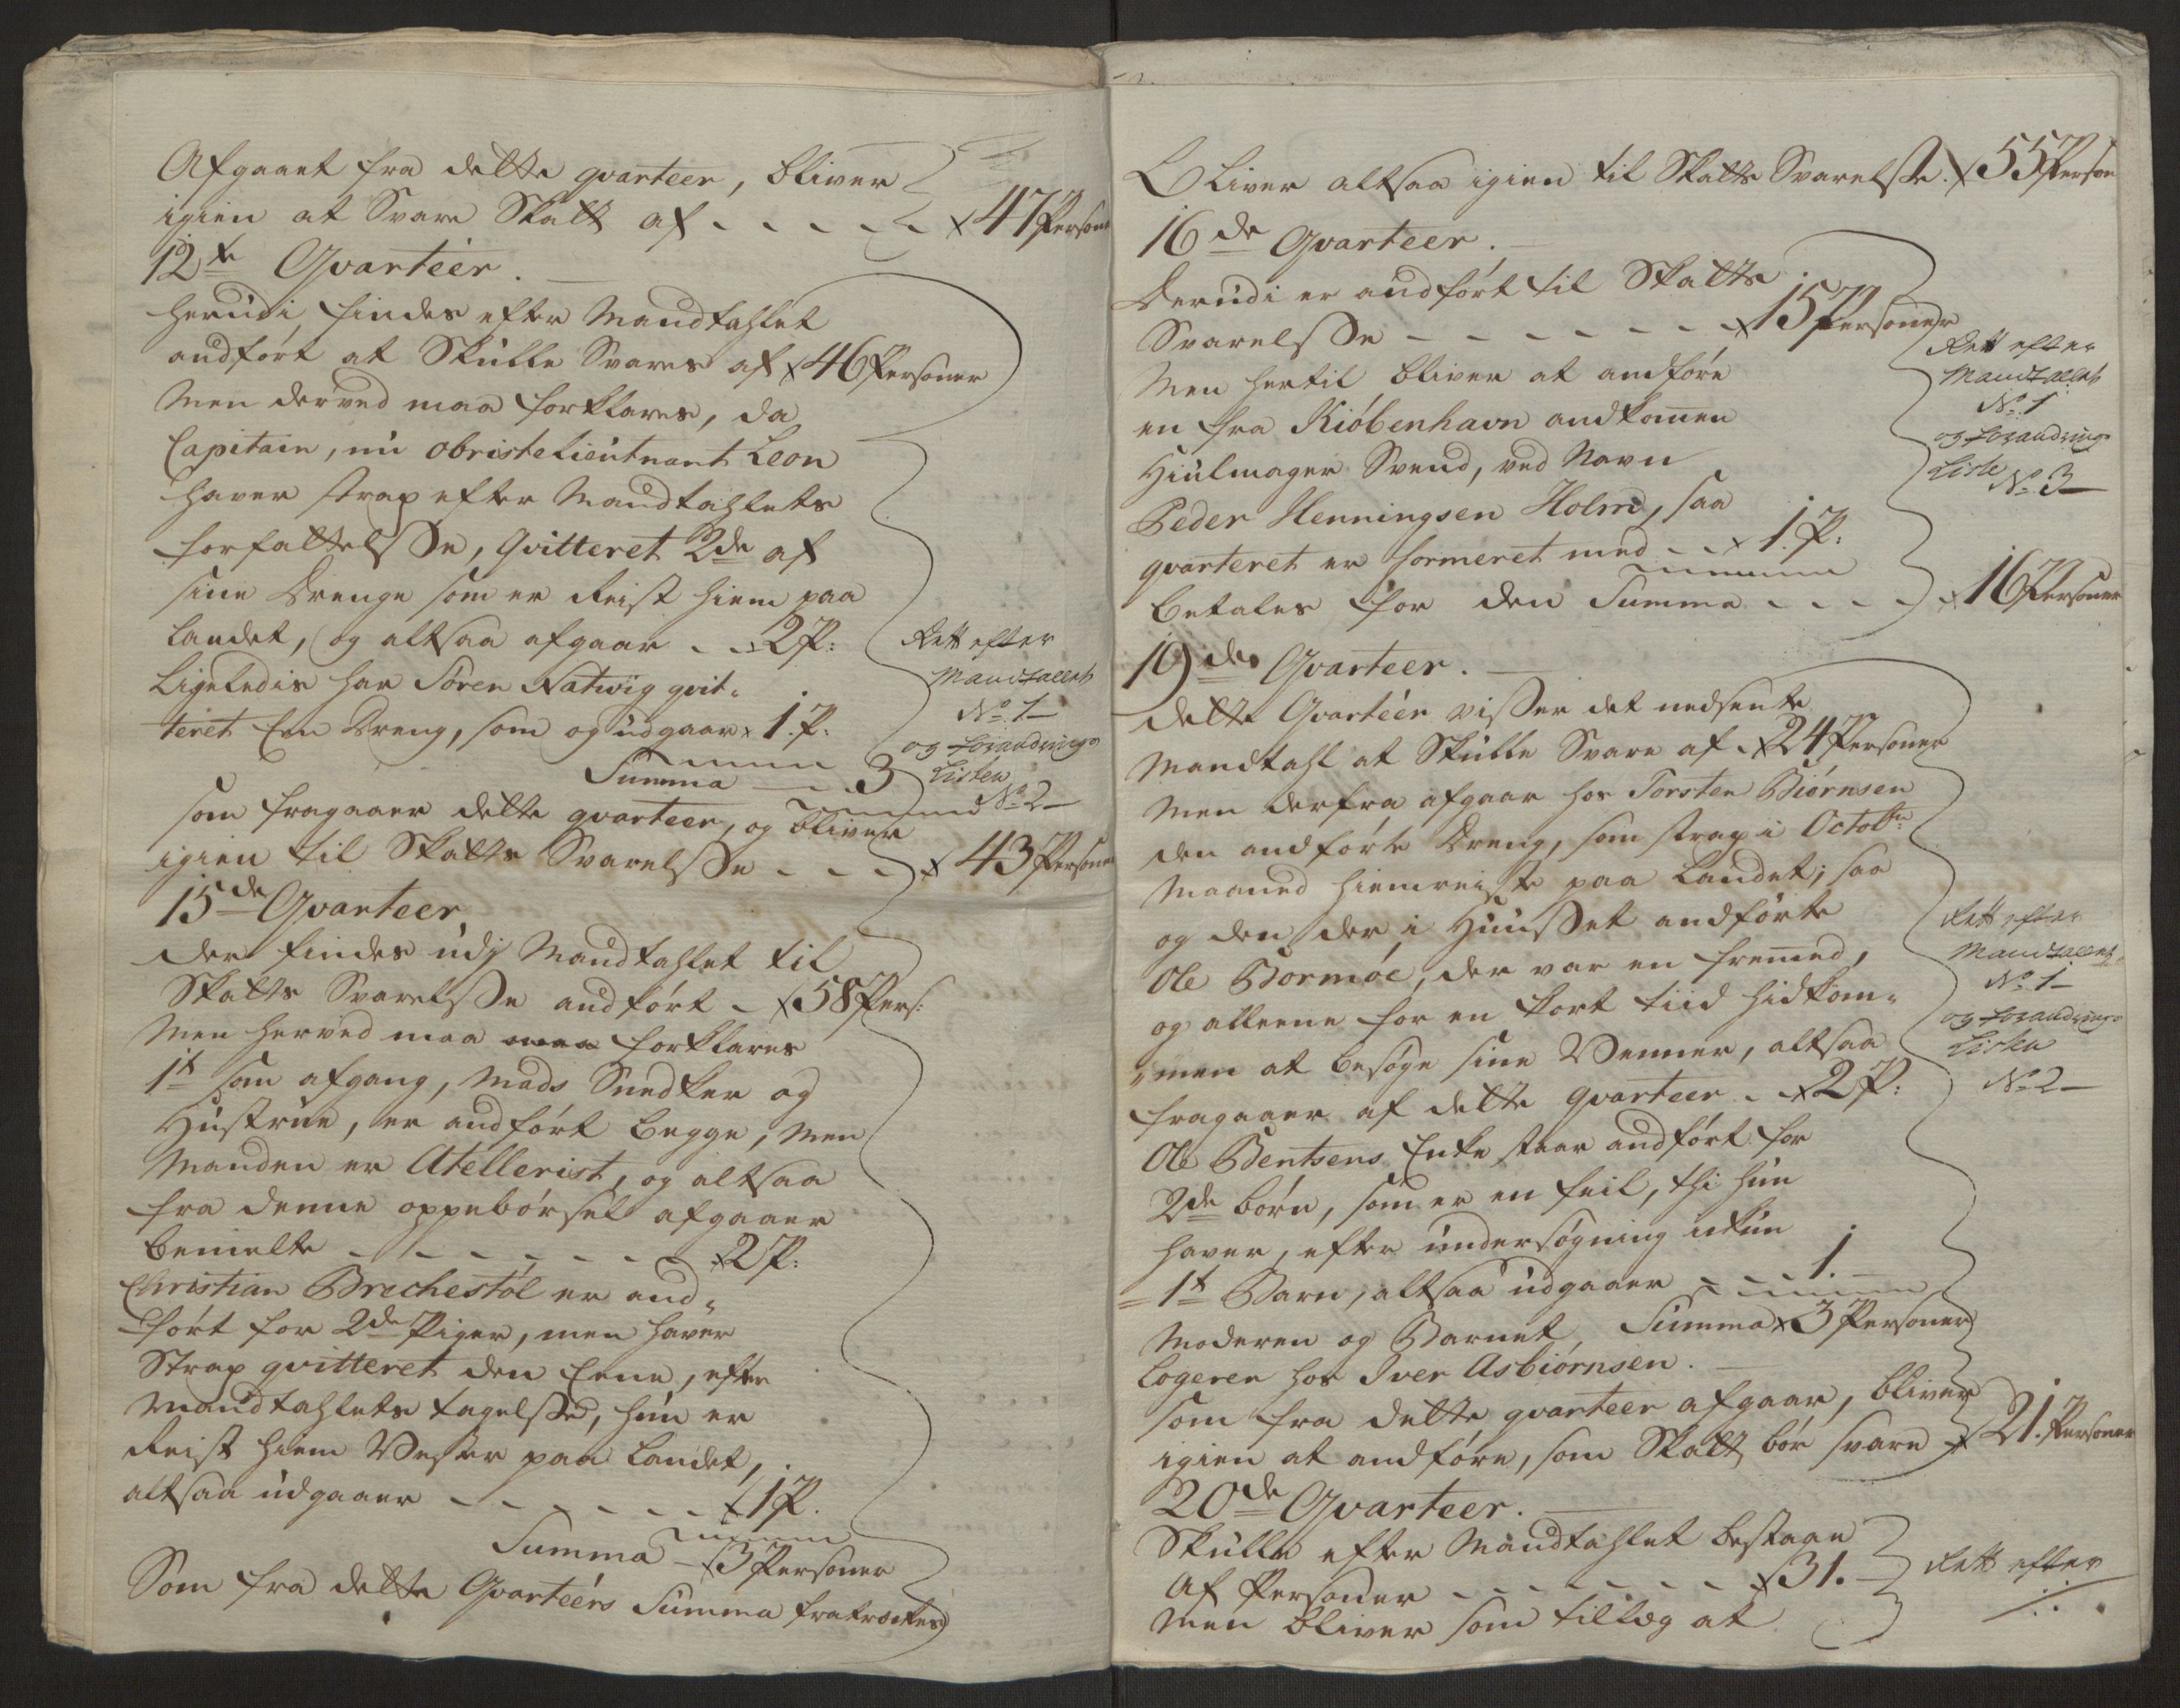 Afgaaet fra dette qvarteer, bliver
igien at Svare Skatt af - - - - - x 47 Persone
12te Qvarteer.
herudi findes efter Mandtahlet
andført at Skulle Svares af x 46 Personer
Men derved maa forklares, da
Capitain, nu Obristelieutnant Leon
haver strax efter Mandtahlets
forfattelsse, Qvitteret 2de af
sine Drenge som er Reist hiem paa
Landet, og altsaa afgaar - - 2 P:
Ligeledis har Sören Natwig qvit-
teret Een Dreng, som og udgaar x 1. P:
Summa - - 3
som fragaaer dette qvarteer, og bliver
igien til Skatts Svarelsse - - - x 43 Persone
Rett efter
Mandtallet
No. 1
og forandrings
Listen
No. 2
15de Qvarteer
Der findes udj Mandtahlet til
Skatts Svarelsse andført - x 58 Pers:
Men herved maa maa forklares
1t som afgang, Mads Snedker og
Hustrue, er andført begge, Men
Manden er Atellerist, og altsaa
fra denne oppebørsel afgaaer
bemelte - - - - - - - x 2 P:
Christian Brechestøl er and-
ført for 2de Piger, men haver
Strax qvitteret den Eene, efter
Mandtahlets tagelsse, hun er
Reist hiem Vester paa Landet,
altsaa udgaaer - - - - - - x 1 P.
Summa - x 3 Personer
Som fra dette Qvarteers Summa fratrækkes
Bliver altsaa igien til Skatts Svarelsse. x 55 Person
16de Qvarteer.
Derudi er andført til Skatts
Svarelsse - - - - - - - x 15 Personer
Men hertil bliver at andføre
en fra Kiøbenhavn andkommen
Hiulmager Svend, ved Navn
Peder Henningsen Holm, saa
qvarteret er formeret med - - x 1. P:
betales for den Summa - - - - x 16 Personer
Rett efter
Mandtallet
No. 1
og forandrings
Liste No. 3
19des Qvarteer.
Dette Qvarteer visser det nedsendte
Mandtahl at Skulle Svare af x 24 Personer
Men derfra afgaar hos Torsten Biørnsen
den andførte Dreng, som strax i Octobr:
Maaned hiemreiste paa Landet; saa
og den der i Huusset andførte
Ole Bormøe, der var en fremmed,
og alleene for en kort tiid hidkom-
men at besøge sine Venner, altsaa
fragaaer af dette qvarteer - x 2 P:
Ole Bentsens Enke staar andført for
2de børn, som er en feil, thi hun
haver, efter undersøgning ikkun
1t Barn, altsaa udgaaer - - - 1.
Moderen og Barnet Summa x 3 Personer
Logerer hos Iver Asbiørnsen.
som fra dette qvarteer afgaar, bliver
igien at andføre, som Skatt bør svare x 21. Personer
Rett efter
Mandtallet
No. 1
og forandrings
Listen
No. 2
20de Qvarteer.
Skulle efter Mandtahlet bestaae
Af Personer - - - - - - - x 31.
Men bliver som tillæg at
Rett efter